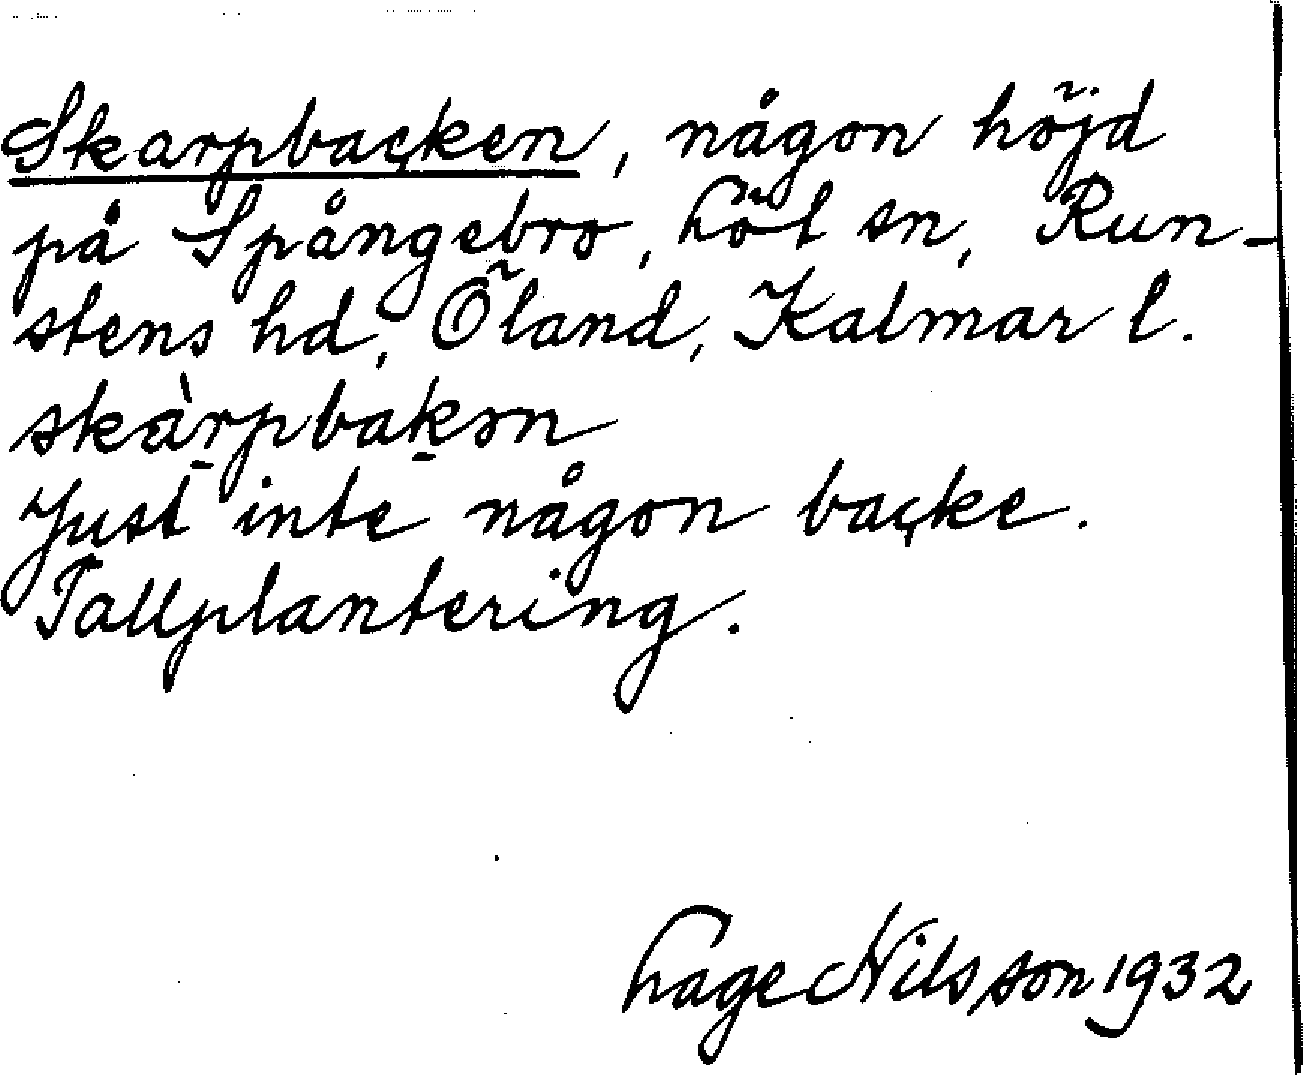 Skarpbacken, någon höjd
på Spångebro, Löt sn, Run-
stens hd, Öland, Kalmar l.
skàrpbakən
Just inte någon backe.
Tallplantering.
Lage Nilsson 1932